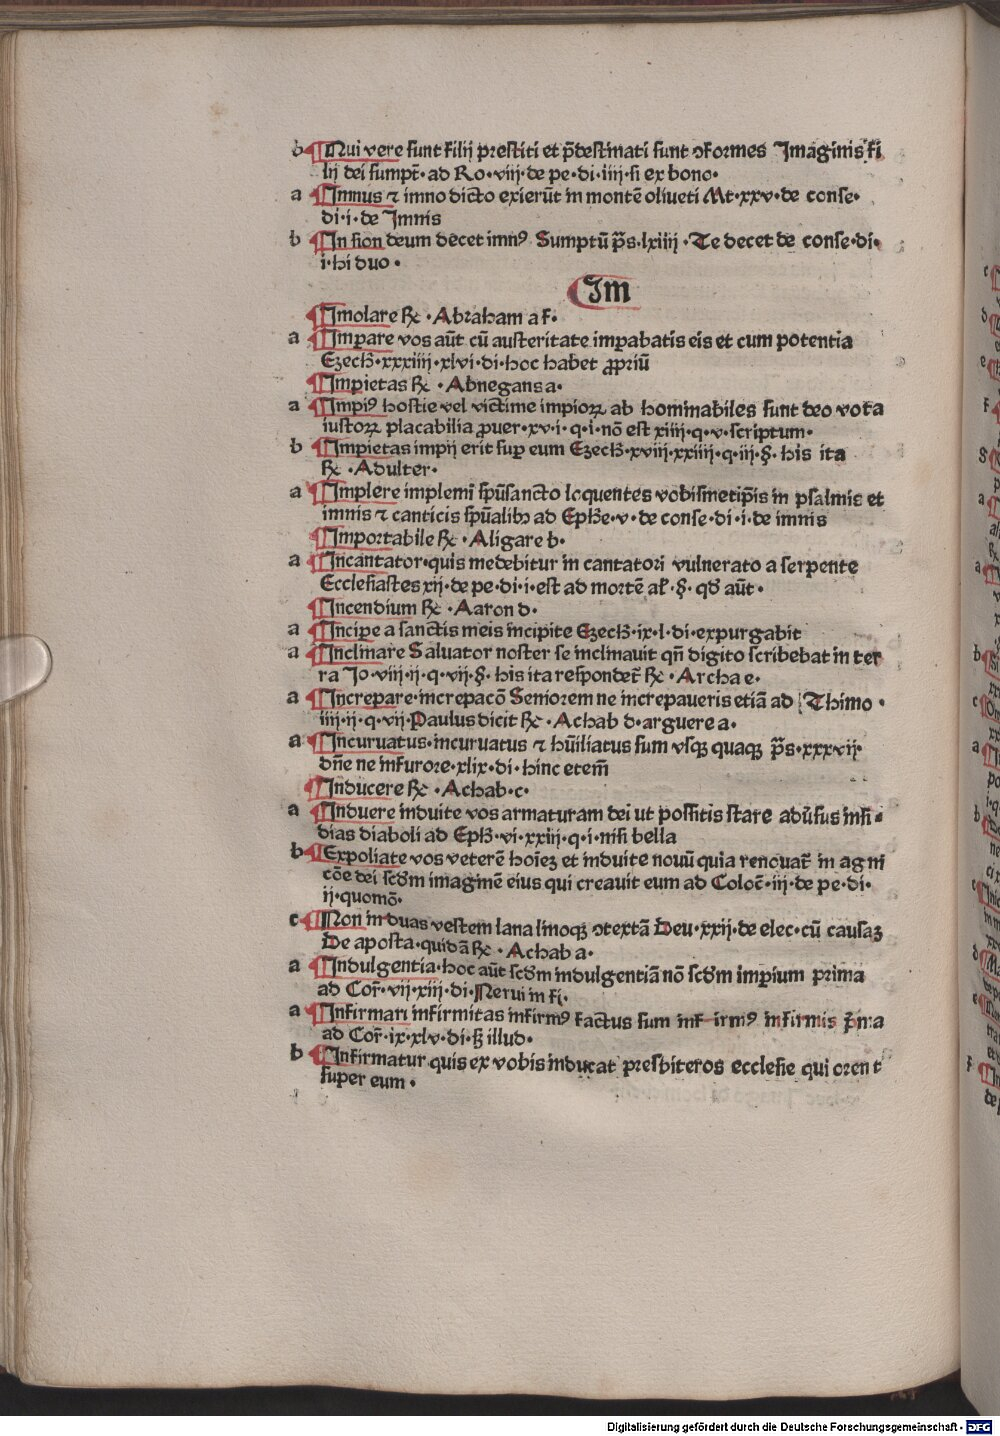 b Nui vere sunt filij prestiti et p̄destinati sunt ↄformes Imaginis fi
lij dei sumpt̄· ad Ro·viij·de pe·di·iiij·si ex bono·
a Imnus ⁊ imno dicto exierūt in montē oliueti Mt·xxv·de conse·
di·i·de Imnis
b In sion deum decet imnꝰ Sumptū p̄s·lxiiij·Te decet de conse·di·
i·hi duo·
Im
Imolare ℞c·Abraham a f·
a Imꝑare vos aūt cū austeritate imꝑabatis eis et cum potentia
Ezech̄·xxxiiij·xlvi·di·hoc habet ꝓpriū
Impietas ℞c·Abnegans a·
a Impiꝰ hostie vel victime impioꝝ ab hominabiles sunt deo vota
iustoꝝ placabilia ꝓuer·xv·i·q·i·nō est xiiij·q·v·scriptum·
b Impietas impij erit suꝑ eum Ezech̄·xviij·xxiiij·q·iij·§·his ita
℞c·Adulter·
a Implere implemī sp̄usancto loquentes vobismetip̄is in psalmis et
imnis ⁊ canticis sp̄ualibꝫ ad Ephe·v·de conse·di·i·de imnis
Importabile ℞c·Aligare b·
a Incantator·quis medebitur in cantatori vulnerato a serpente
Ecclesiastes xij·de pe·di·i·est ad mortē al̄·§·qđ aūt·
Incendium ℞c·Aaron d·
a Incipe a sanctis meis incipite Ezech̄·ix·l·di·expurgabit
a Inclinare Saluator noster se inclinauit qn̄ digito scribebat in ter
ra Jo·viij·ij·q·vij·§·his ita respondet̄ ℞c·Archa e·
a Increpare·increpacō Seniorem ne increpaueris etiā ad Thimo·
iiij·ij·q·vij·Paulus dicit ℞c·Achab d·arguere a·
a Incuruatus·incuruatus ⁊ hūiliatus sum vsqꝫ quaqꝫ p̄s·xxxvij·
dn̄e ne in furore·xlix·di·hinc etem̄
Inducere ℞c·Achab·c·
a Induere induite vos armaturam dei ut possitis stare adūsus insi-
dias diaboli ad Eph̄·vi·xxiij·q·i·nisi bella
b Expoliate vos veterē hoīeꝫ et induite nouū quia renouat̄ in agni
cōe dei scđm imaginē eius qui creauit eum ad Coloc̄·iij·de pe·di·
ij·quomō·
c Non induas vestem lana linoqꝫ ↄtextā Deu·xxij·de elec·cū causaꝫ
De aposta·quidā ℞c·Achab a·
a Indulgentia·hoc aūt scđm indulgentiā nō scđm imꝑium prima
ad Cor̄·vij·xiij·di·Nerui in fi·
a Infirmari infirmitas infirmꝰ factus sum inf irmꝰ infirmis p̄ma
ad Cor̄·ix·xlv·di·ꝫ illud·
b Infirmatur quis ex vobis inducat presbiteros ecclesie qui orent
super eum·
Digitalisierung gefördert durch die Deutsche Forschungsgemeinschaft - DFG